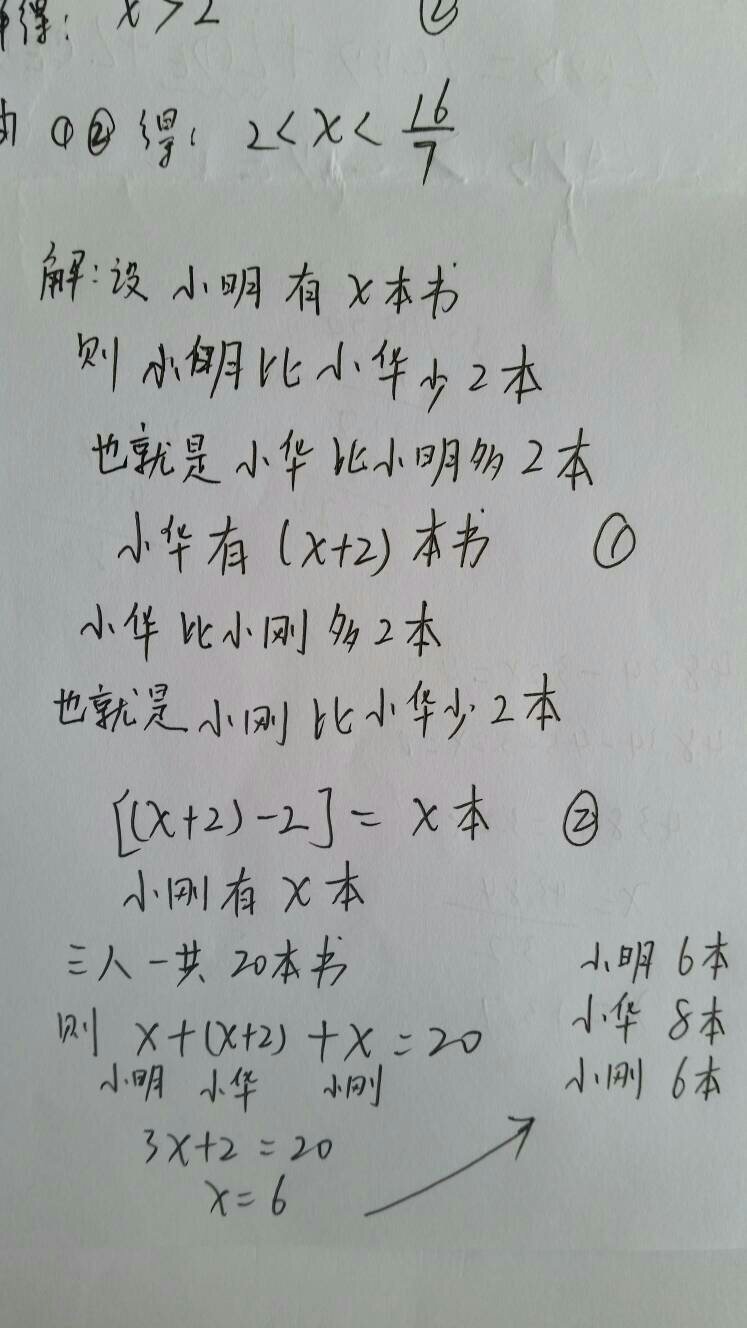 得: x>2 ②
由①②得: 2<x<16/7
解:设小明有x本书
则小明比小华少2本
也就是小华比小明多2本
小华有(x+2)本书 ①
小华比小刚多2本
也就是小刚比小华少2本
[(x+2)-2]=x本 ②
小刚有x本
三人一共20本书
则 x+(x+2)+x=20
小明 小华 小刚
3x+2=20
x=6
小明 6本
小华 8本
小刚 6本